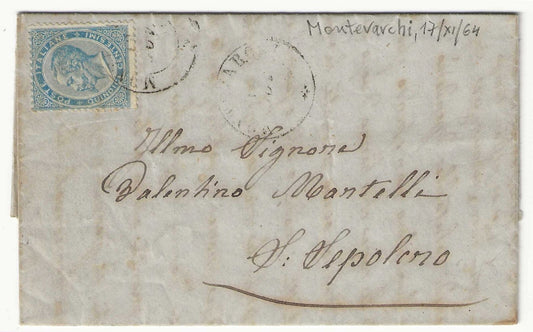 Montevarchi, 17/XI/64
POSTE ITALIANE
QUINDICI CENTESIMI
Illmo Signore
Valentino Mantelli
S. Sepolcro